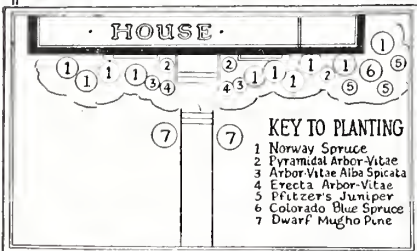 ·HOUSE·
1
1 1 1 1 3 4 2 2 4 3 1 1 1 1 2 1 6 5
5 5
7 7
KEY TO PLANTING
1 Norway Spruce
2 Pyramidal Arbor-Vitae
3 Arbor-Vitae Alba Spicata
4 Erecta Arbor-Vitae
5 Pfitzer's Juniper
6 Colorado Blue Spruce
7 Dwarf Mugho Pine